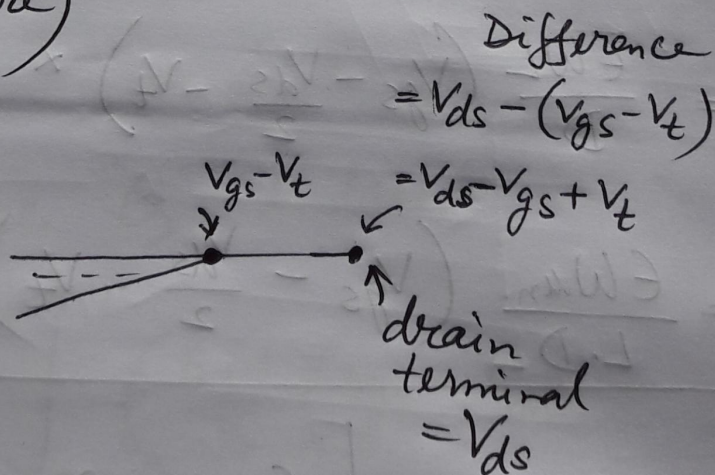 Difference
= Vds - (Vgs - Vt)
= Vds - Vgs + Vt
Vgs - Vt
drain
terminal
= Vds